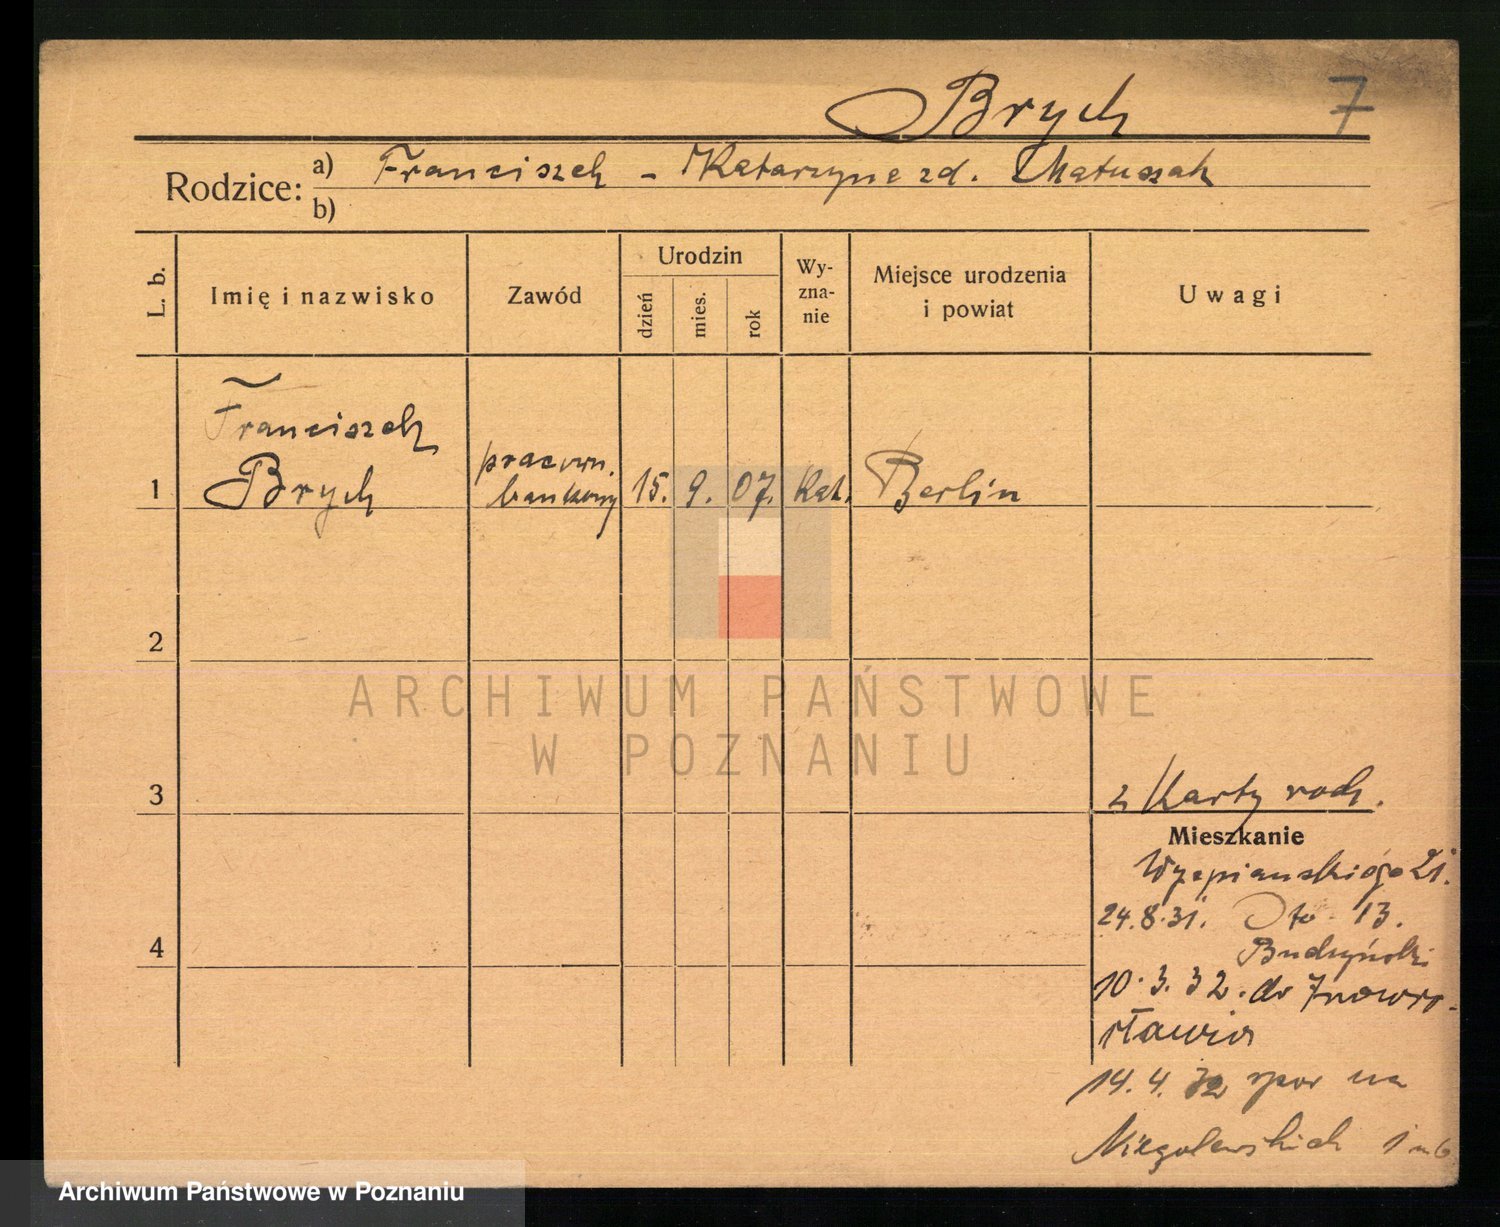 Brych 7
Rodzice: a) Franciszek - Katarzyna zd. Matuszak
b)
L. b. Imię i nazwisko Zawód Urodzin dzień mies. rok Wyznanie Miejsce urodzenia i powiat Uwagi
Franciszek
pracown.
1 Brych bankowy 15. 9. 07. Kat. Berlin
2
ARCHIWUM PAŃSTWOWE
W POZNANIU
3 z Karty rodz.
Mieszkanie
Wyspiańskiego 21.
24.8.31. Oto 13.
4 Budzyński
10.3.32. do Inowro-
cławia
14.4.32 spor na
Niegolewskich 1 m 6
Archiwum Państwowe w Poznaniu